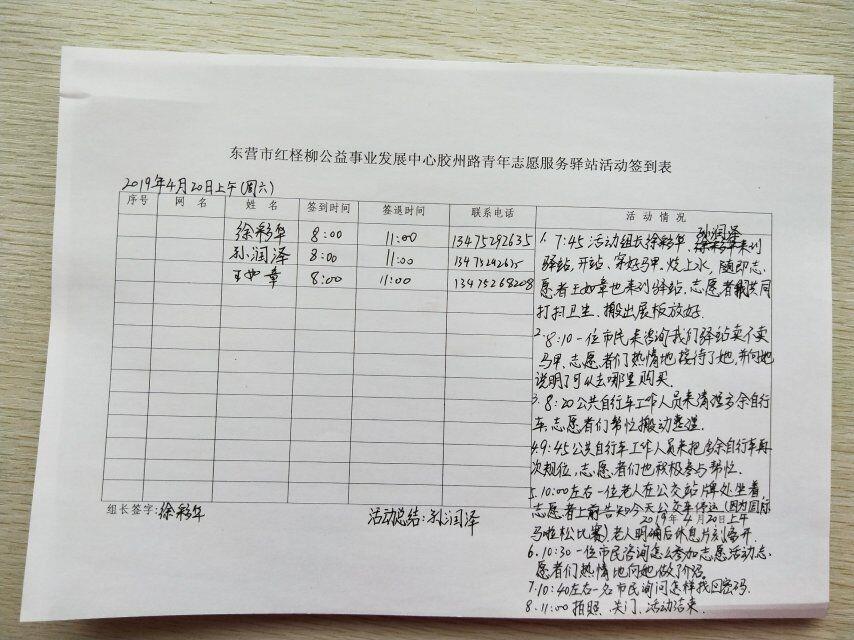 东营市红柽柳公益事业发展中心胶州路青年志愿服务驿站活动签到表
2019年4月20日上午(周六)
序号 网名 姓名 签到时间 签退时间 联系电话 活动情况
徐彩华 8:00 11:00 13475292635
孙润泽 8:00 11:00 13475292635
王如章 8:00 11:00 13475268208
孙润泽
1. 7:45活动组长徐彩华、来到
驿站,开站、穿好马甲、烧上水,随即志
愿者王如章也来到驿站,志愿者共同
打扫卫生、搬出展板放好.
2. 8:10一位市民来咨询我们驿站卖不卖
马甲、志愿者们热情地接待了她,并向她
说明了可以去哪里购买.
3. 8:20公共自行车工作人员来清理多余自行
车,志愿者们帮忙搬动整理.
4. 9:45公共自行车工作人员来把多余自行车再
次规位,志愿者们也积极参与帮忙.
5. 10:00左右一位老人在公交站牌处坐着,
志愿者上前告知今天公交车停运(因为国际
2019年4月20日上午
马啦松比赛)老人明确后休息片刻离开.
6. 10:30一位市民咨询怎么参加志愿活动志
愿者们热情地向她做了介绍.
7. 10:40左右一名市民询问怎样找回密码.
8. 11:00拍照、关门、活动结束.
组长签字:徐彩华 活动总结:孙润泽